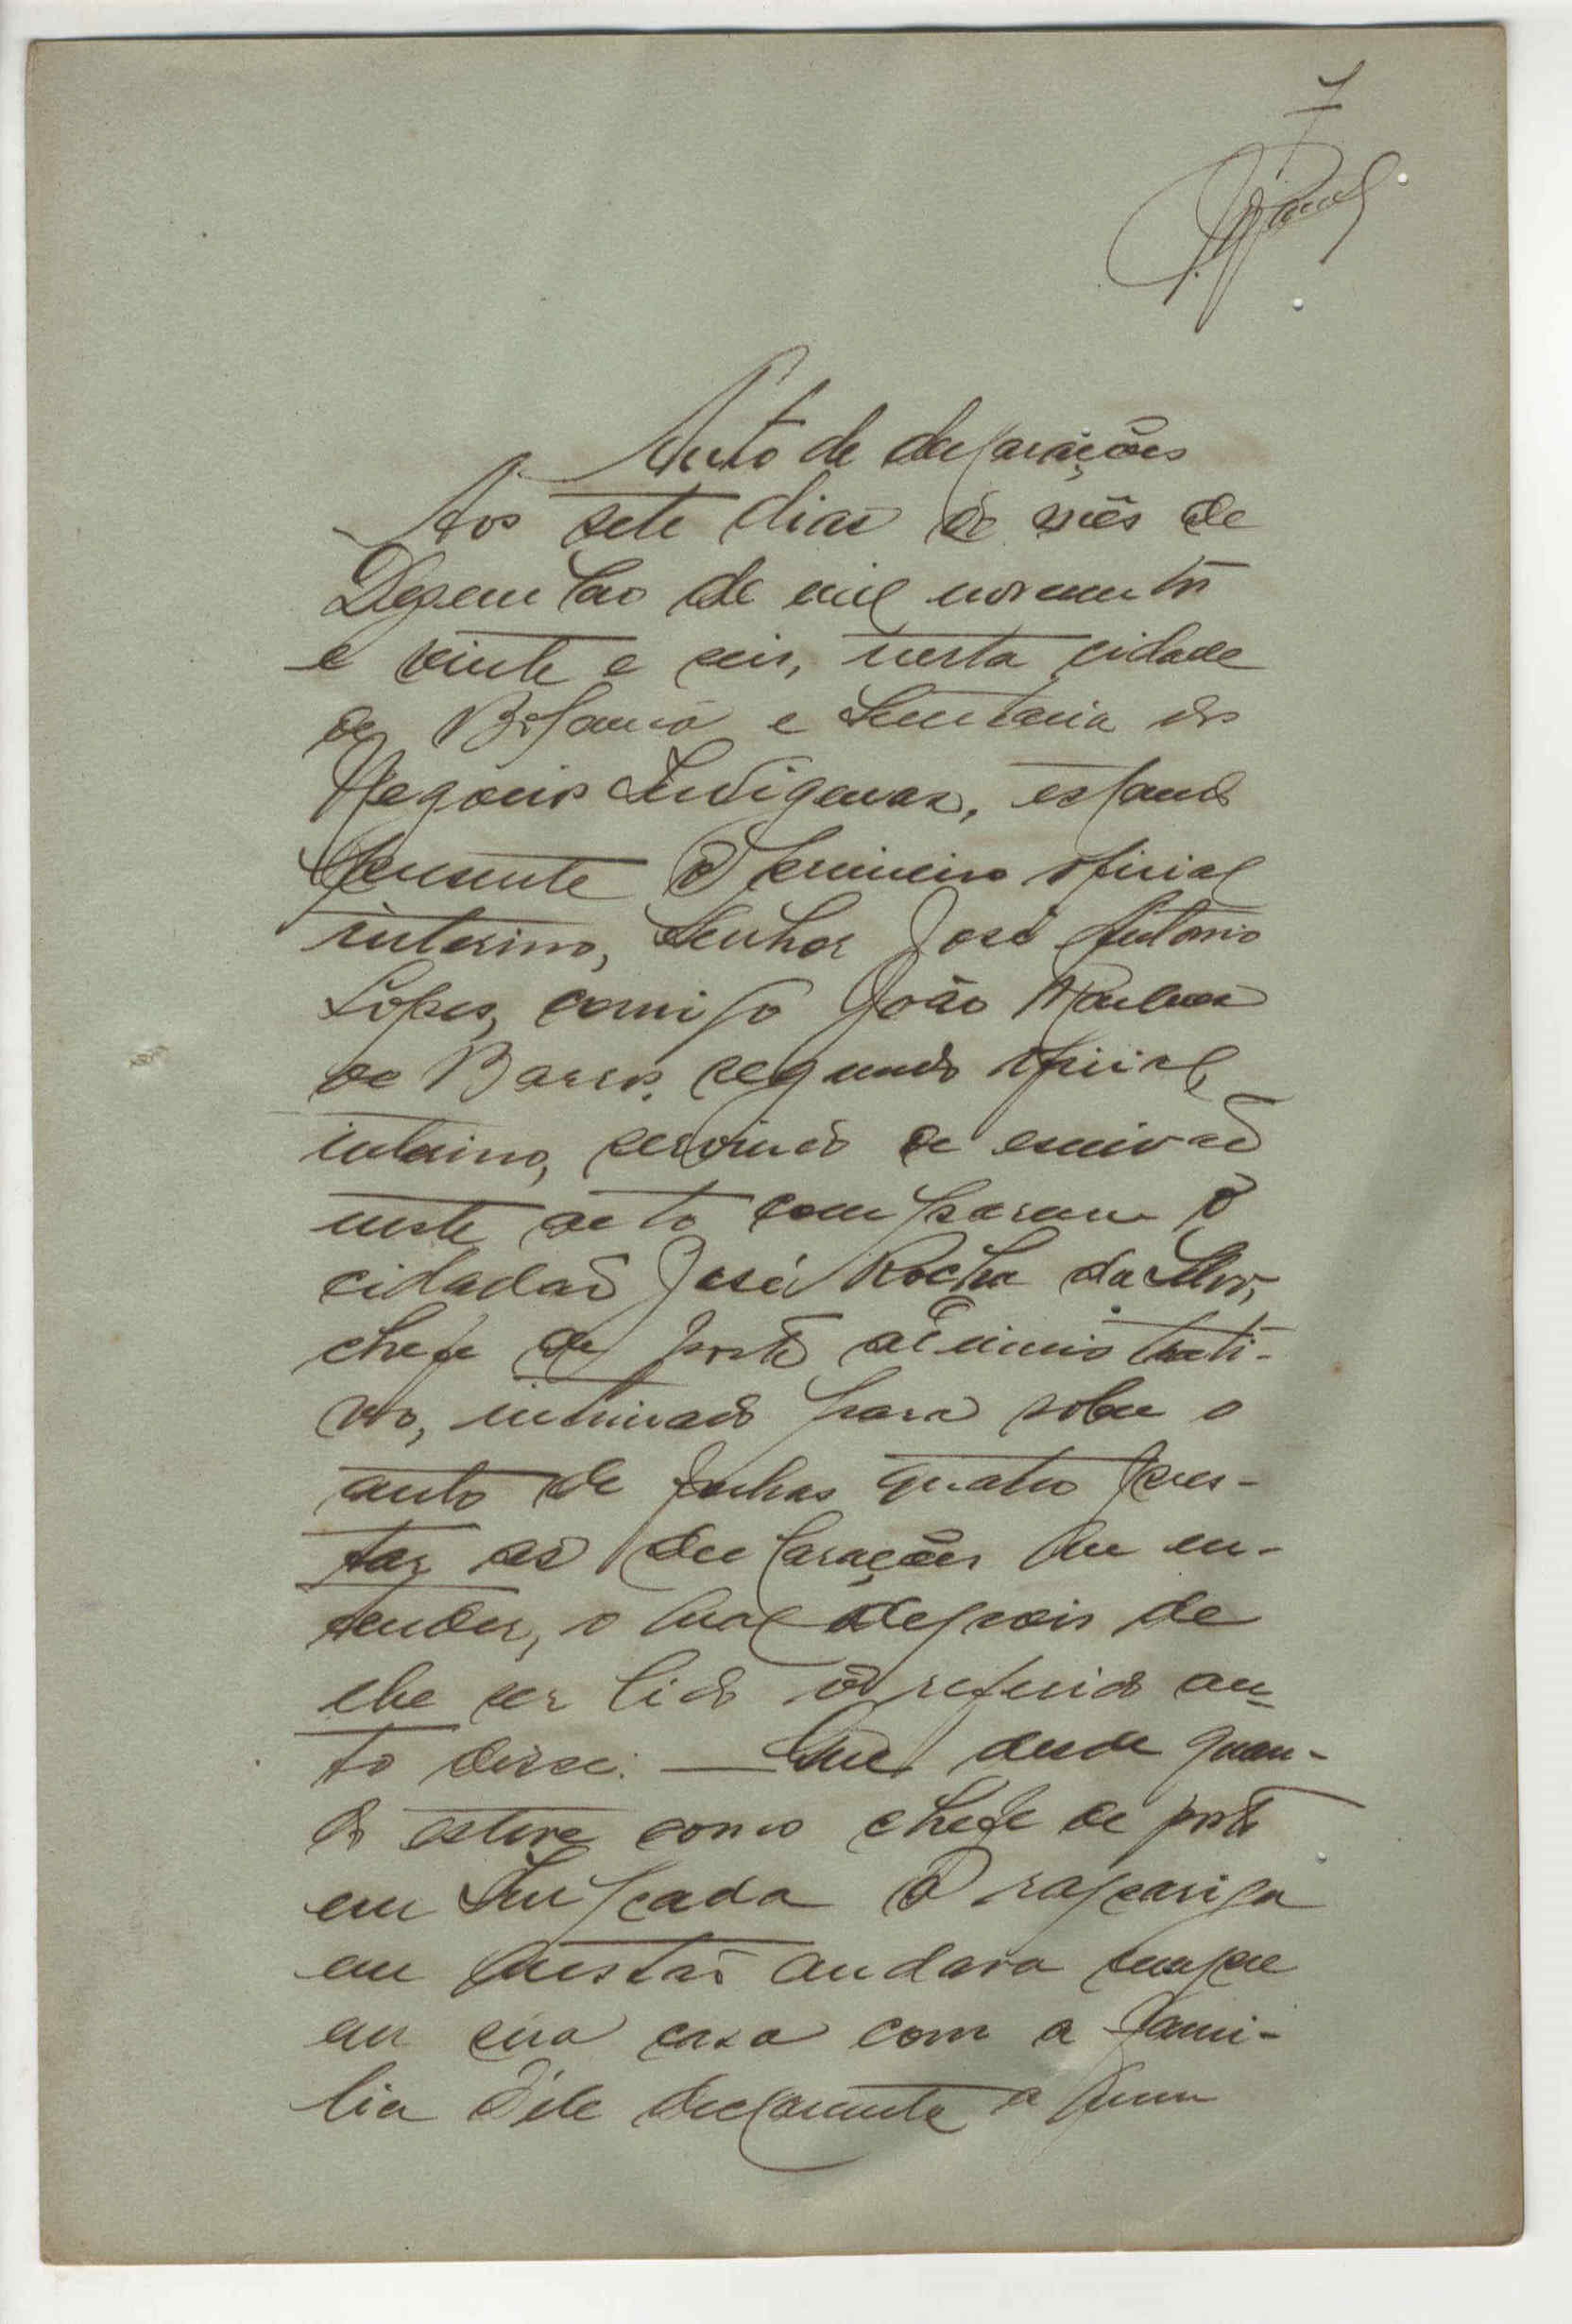 7
Auto de declarações
Aos sete dias do mês de
Dezembro de mil novecentos
e vinte e seis, nesta cidade
de Bolama e Secretaria dos
Negócios Indigenas, estando
presente o primeiro oficial
interino, Senhor José Antonio
Lopes, comigo João
de Barros, segundo oficial,
interino, servindo de escrivão
neste acto compareceu o
cidadão José Rocha da Silva,
chefe de posto administrati-
vo, intimado para sobre o
auto de folhas quatro pres-
tar as declarações que en-
tender, o qual depois de
lhe ser lido o referido au-
to disse: — Que desde quan-
do esteve como chefe de posto
em a rapariga
em questão andava sempre
em sua casa com a fami-
lia dêle declarante a quem